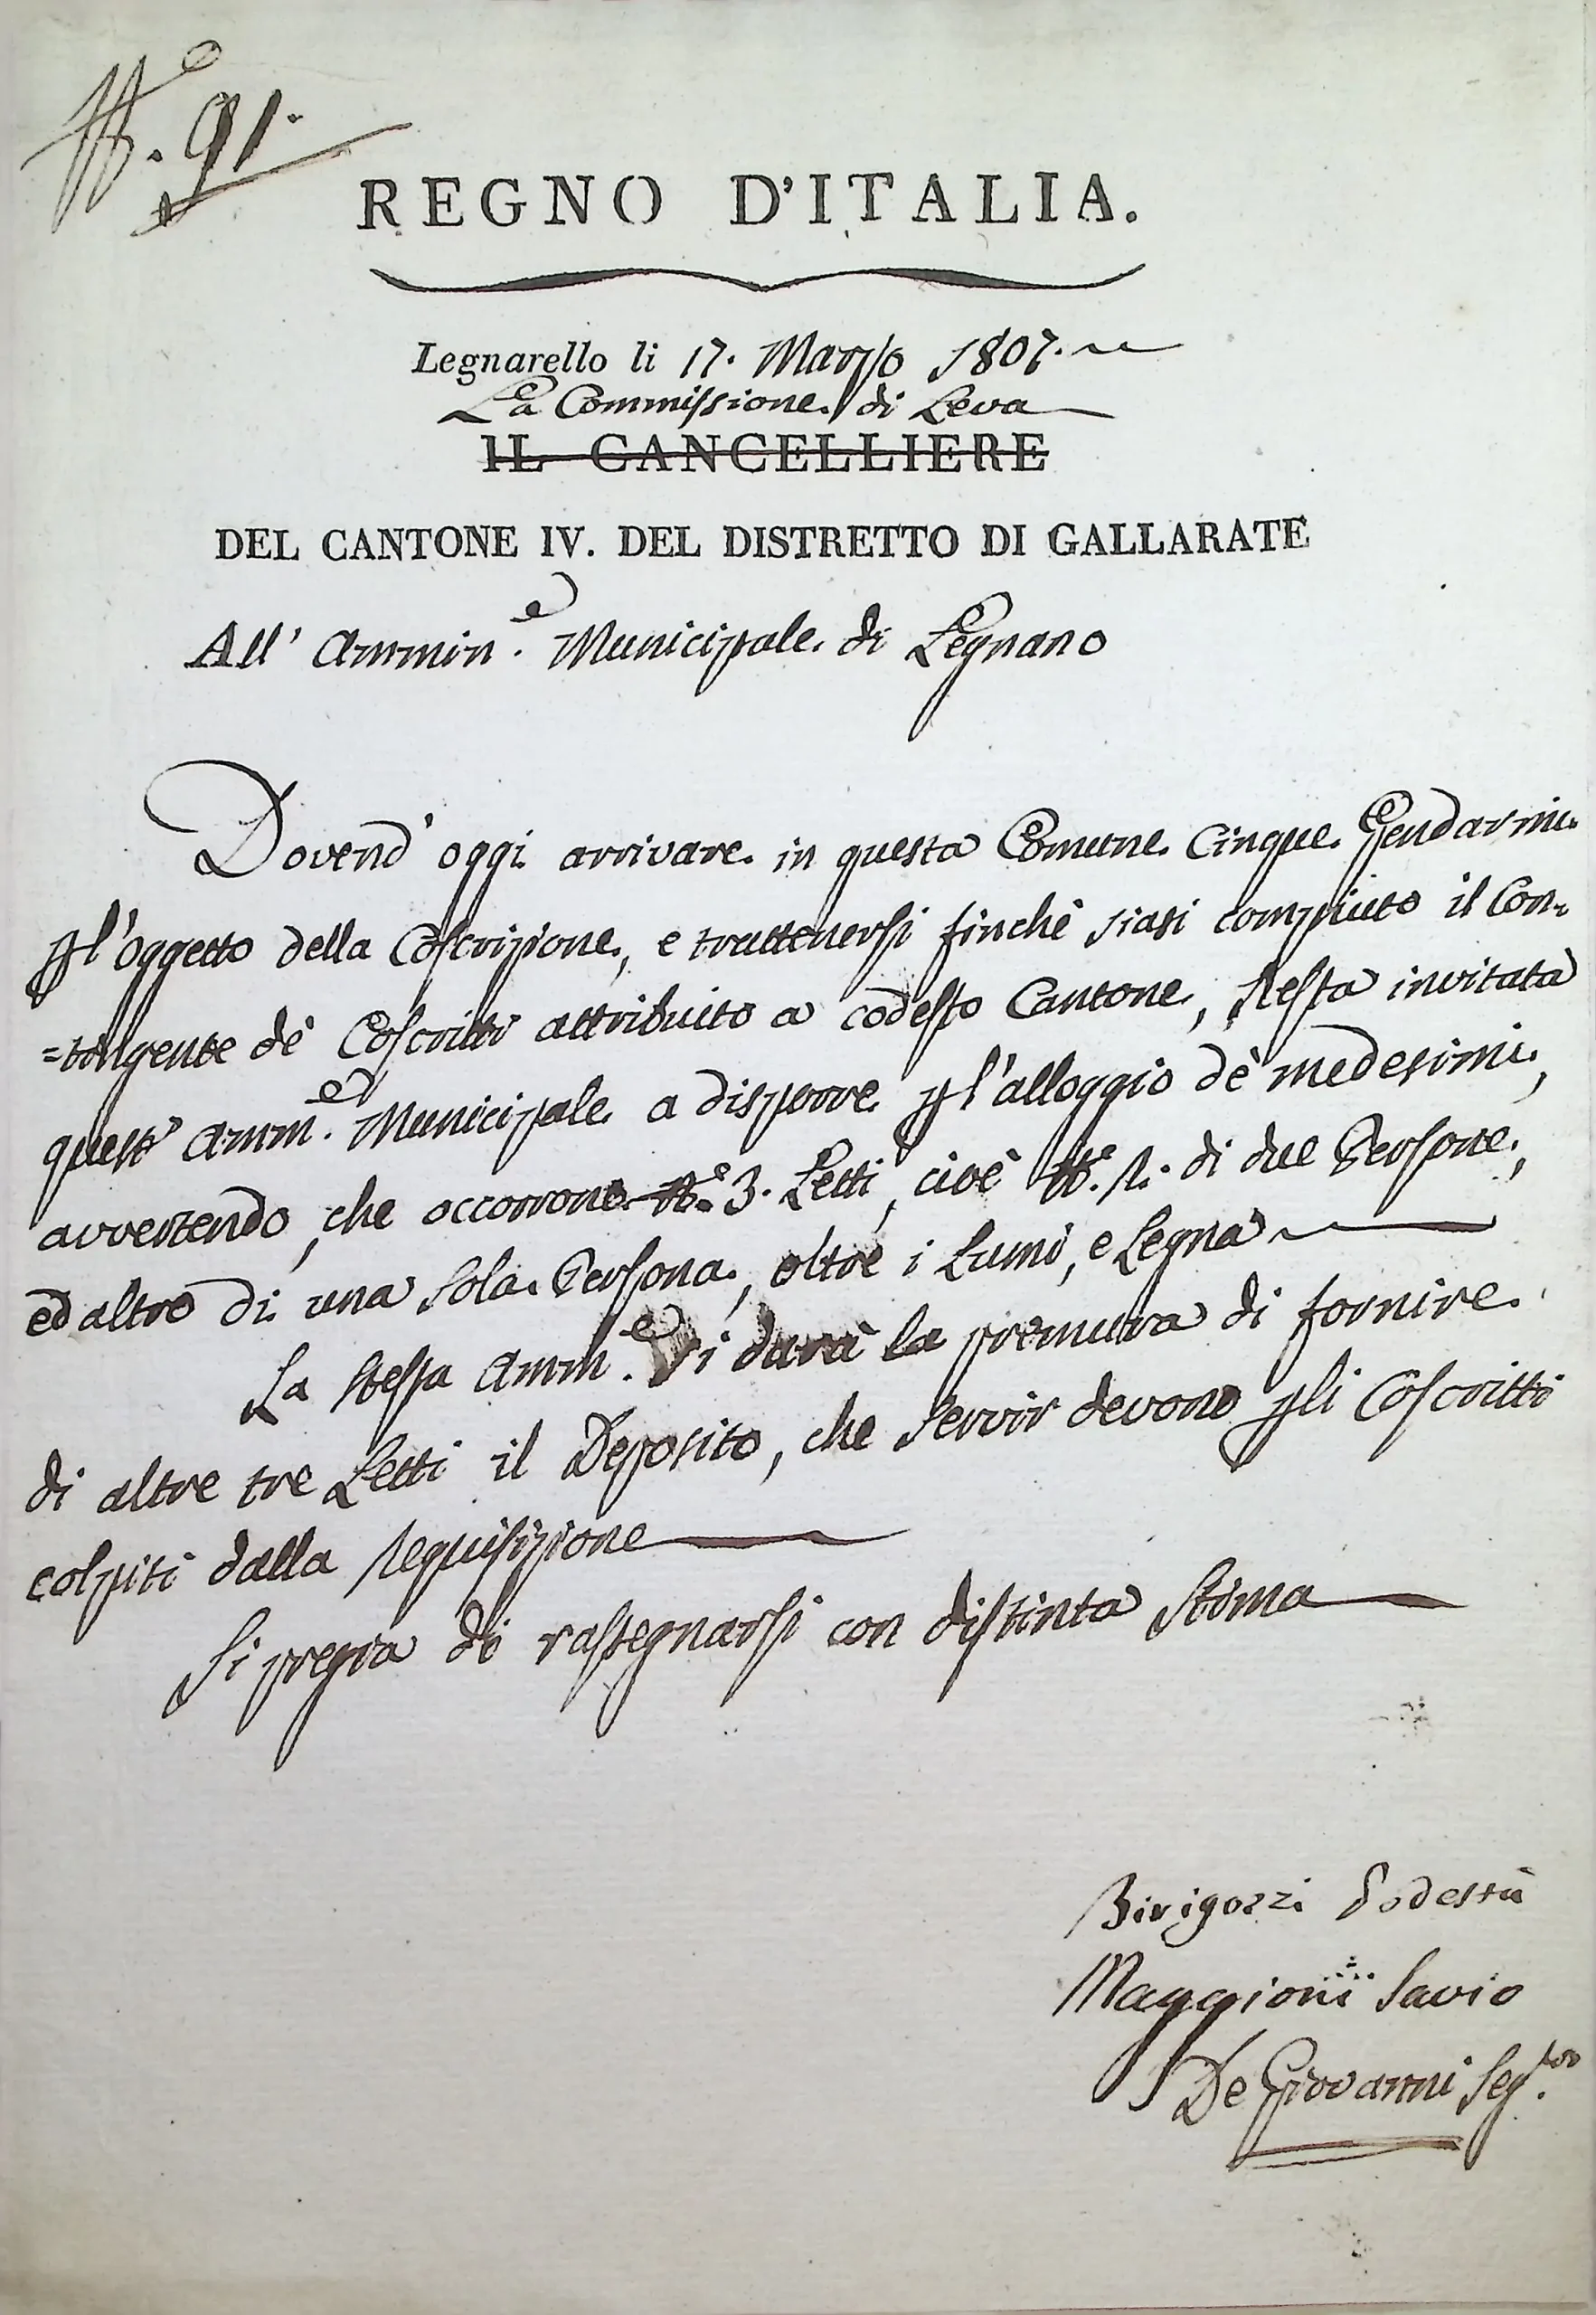 N.º 91.
REGNO D'ITALIA.
Legnarello li 17. Marzo 1807.
La Commissione di Leva
IL CANCELLIERE
DEL CANTONE IV. DEL DISTRETTO DI GALLARATE
All' Ammin.e Municipale di Legnano
Dovend' oggi arrivare in questa Comune Cinque Gendarmi
p l'oggetto della Coscrizione, e trattenersi finchè siasi compiuto il Con-
=tingente dè Coscritti attribuito a codesto Cantone, Resta invitata
quest' Amm.e Municipale a disporre p l'alloggio dè medesimi,
avvertendo, che occorrono N.e 3. Letti, cioè N.e 2. di due Persone,
ed altro di una sola Persona, oltre i Lumi, e Legna
La stessa Amm.e si darà la premura di fornire
di altre tre Letti il Deposito, che servir devono p gli Coscritti
colpiti dalla requisizione
Si pregia di rassegnarsi con distinta stima
Birigozzi Podestà
Maggioni Savio
De Giovanni Seg.rio